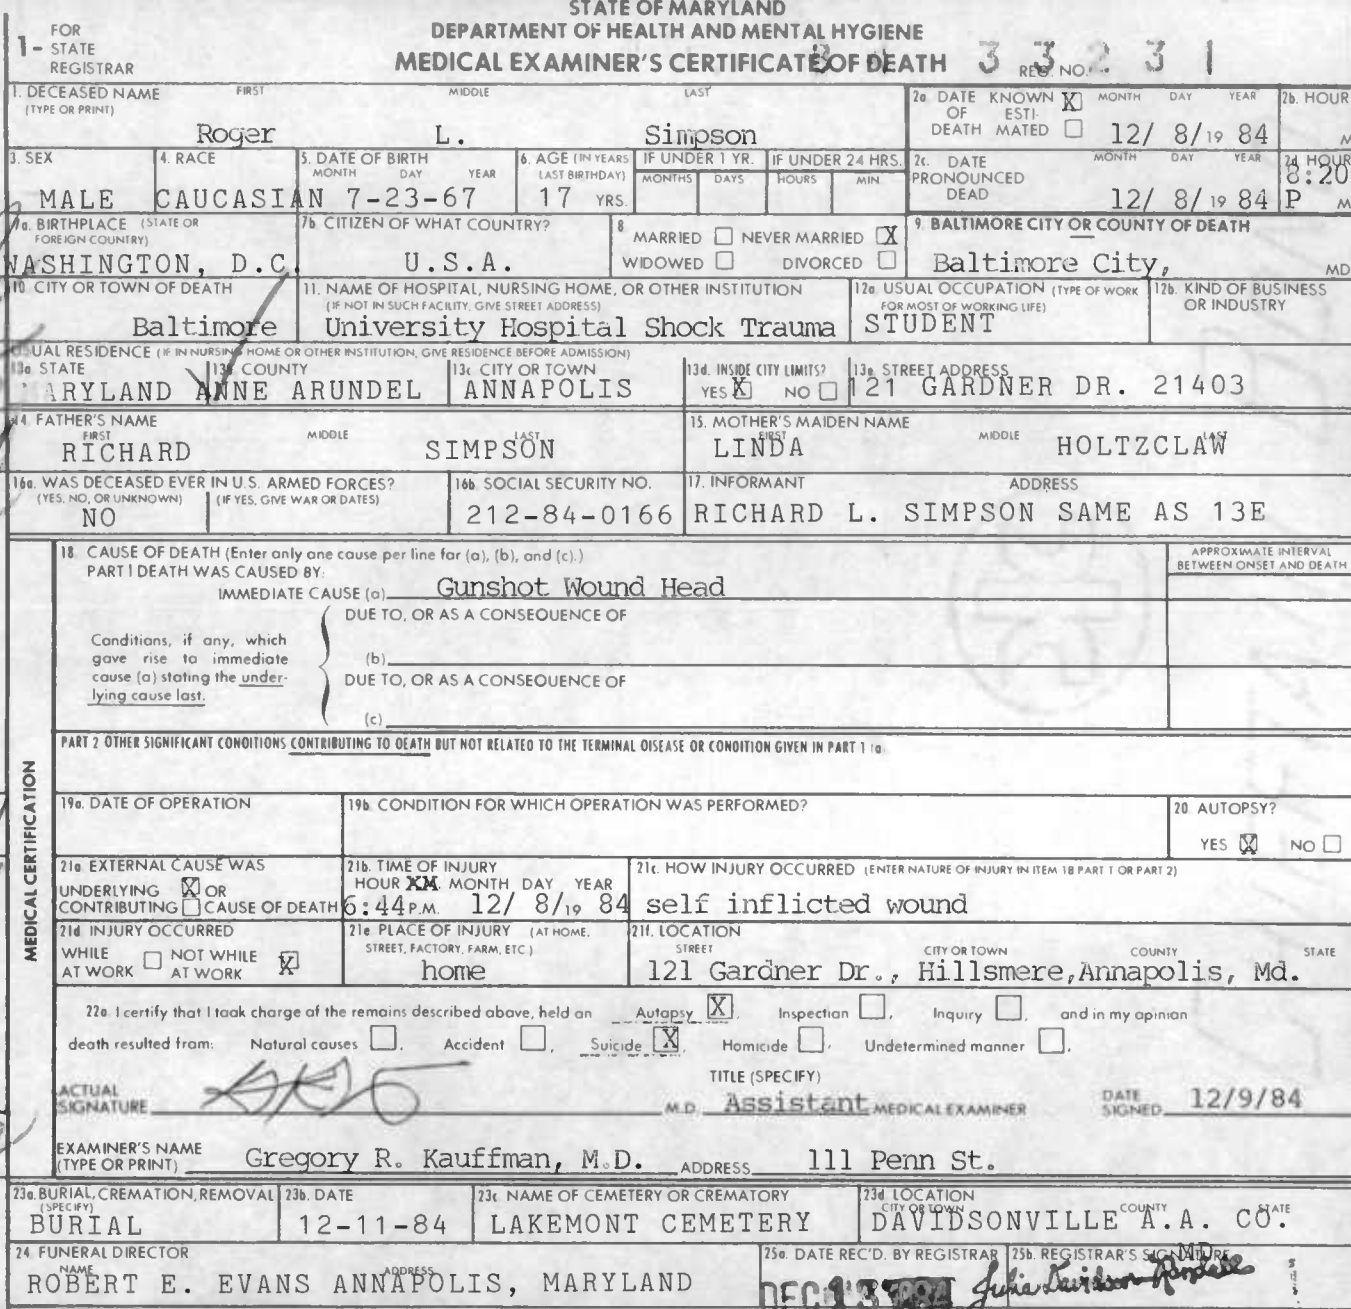 STATE OF MARYLAND
DEPARTMENT OF HEALTH AND MENTAL HYGIENE
MEDICAL EXAMINER'S CERTIFICATE OF DEATH
1- FOR STATE REGISTRAR
REG. NO. 33231
1. DECEASED NAME (TYPE OR PRINT) FIRST MIDDLE LAST
Roger L. Simpson
2a. DATE OF DEATH KNOWN X ESTIMATED MONTH DAY YEAR
12/ 8/19 84
2b. HOUR M
3. SEX
MALE
4. RACE
CAUCASIAN
5. DATE OF BIRTH MONTH DAY YEAR
7-23-67
6. AGE (IN YEARS LAST BIRTHDAY)
17 YRS.
IF UNDER 1 YR. MONTHS DAYS
IF UNDER 24 HRS. HOURS MIN.
2c. DATE PRONOUNCED DEAD MONTH DAY YEAR
12/ 8/19 84
2d HOUR
8:20 P M
7a. BIRTHPLACE (STATE OR FOREIGN COUNTRY)
WASHINGTON, D.C.
7b CITIZEN OF WHAT COUNTRY?
U.S.A.
8 MARRIED NEVER MARRIED X
WIDOWED DIVORCED
9. BALTIMORE CITY OR COUNTY OF DEATH
Baltimore City, MD
10 CITY OR TOWN OF DEATH
Baltimore
11. NAME OF HOSPITAL, NURSING HOME, OR OTHER INSTITUTION
(IF NOT IN SUCH FACILITY, GIVE STREET ADDRESS)
University Hospital Shock Trauma
12a. USUAL OCCUPATION (TYPE OF WORK FOR MOST OF WORKING LIFE)
STUDENT
12b. KIND OF BUSINESS OR INDUSTRY
USUAL RESIDENCE (IF IN NURSING HOME OR OTHER INSTITUTION, GIVE RESIDENCE BEFORE ADMISSION)
13a STATE
MARYLAND
13b COUNTY
ANNE ARUNDEL
13c CITY OR TOWN
ANNAPOLIS
13d. INSIDE CITY LIMITS?
YES X NO
13e. STREET ADDRESS
121 GARDNER DR. 21403
14. FATHER'S NAME FIRST MIDDLE LAST
RICHARD SIMPSON
15. MOTHER'S MAIDEN NAME FIRST MIDDLE LAST
LINDA HOLTZCLAW
16a. WAS DECEASED EVER IN U.S. ARMED FORCES?
(YES, NO, OR UNKNOWN) (IF YES, GIVE WAR OR DATES)
NO
16b SOCIAL SECURITY NO.
212-84-0166
17. INFORMANT ADDRESS
RICHARD L. SIMPSON SAME AS 13E
MEDICAL CERTIFICATION
18. CAUSE OF DEATH (Enter only one cause per line for (a), (b), and (c).)
PART I DEATH WAS CAUSED BY:
IMMEDIATE CAUSE (a) Gunshot Wound Head
APPROXIMATE INTERVAL BETWEEN ONSET AND DEATH
DUE TO, OR AS A CONSEQUENCE OF
Conditions, if any, which gave rise to immediate cause (a) stating the underlying cause last.
(b)
DUE TO, OR AS A CONSEQUENCE OF
(c)
PART 2 OTHER SIGNIFICANT CONDITIONS CONTRIBUTING TO DEATH BUT NOT RELATED TO THE TERMINAL DISEASE OR CONDITION GIVEN IN PART 1 (a)
19a. DATE OF OPERATION
19b. CONDITION FOR WHICH OPERATION WAS PERFORMED?
20 AUTOPSY?
YES X NO
21a EXTERNAL CAUSE WAS
UNDERLYING X OR
CONTRIBUTING CAUSE OF DEATH
21b. TIME OF INJURY
HOUR MONTH DAY YEAR
6:44 P.M. 12/ 8/19 84
21c. HOW INJURY OCCURRED (ENTER NATURE OF INJURY IN ITEM 18 PART 1 OR PART 2)
self inflicted wound
21d INJURY OCCURRED
WHILE AT WORK NOT WHILE AT WORK X
21e PLACE OF INJURY (AT HOME, STREET, FACTORY, FARM, ETC.)
home
21f. LOCATION STREET CITY OR TOWN COUNTY STATE
121 Gardner Dr., Hillsmere,Annapolis, Md.
22a. I certify that I took charge of the remains described above, held an Autopsy X, Inspection, Inquiry, and in my opinion
death resulted from: Natural causes, Accident, Suicide X, Homicide, Undetermined manner.
ACTUAL SIGNATURE M.D. TITLE (SPECIFY) Assistant MEDICAL EXAMINER DATE SIGNED 12/9/84
EXAMINER'S NAME (TYPE OR PRINT) Gregory R. Kauffman, M.D. ADDRESS 111 Penn St.
23a. BURIAL, CREMATION, REMOVAL (SPECIFY)
BURIAL
23b. DATE
12-11-84
23c NAME OF CEMETERY OR CREMATORY
LAKEMONT CEMETERY
23d LOCATION CITY OR TOWN COUNTY STATE
DAVIDSONVILLE A.A. CO. MD
24 FUNERAL DIRECTOR NAME ADDRESS
ROBERT E. EVANS ANNAPOLIS, MARYLAND
25a. DATE REC'D. BY REGISTRAR
DEC 13
25b. REGISTRAR'S SIGNATURE
Julia Davidson-Randall